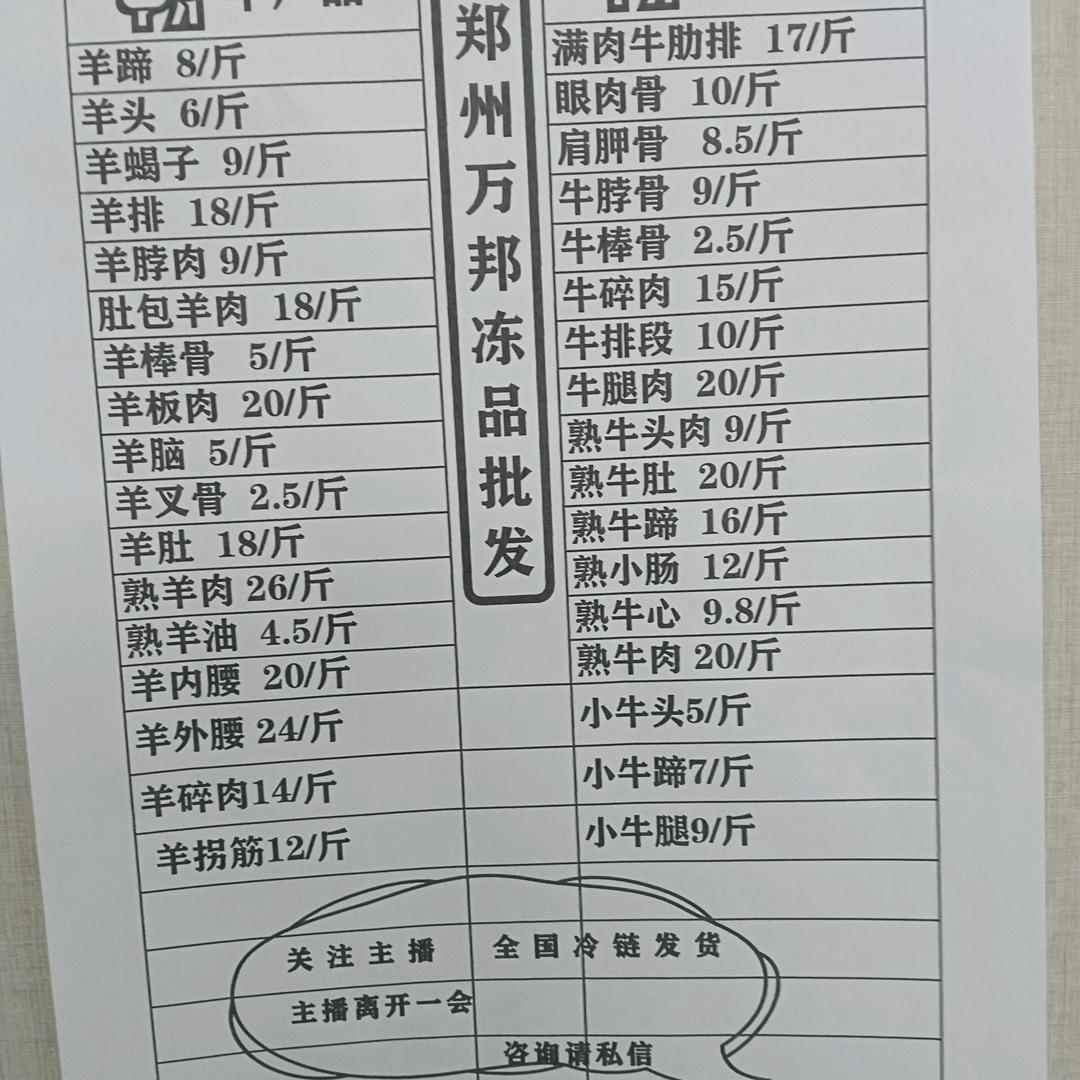 羊蹄 8/斤
羊头 6/斤
羊蝎子 9/斤
羊排 18/斤
羊脖肉 9/斤
肚包羊肉 18/斤
羊棒骨 5/斤
羊板肉 20/斤
羊脑 5/斤
羊叉骨 2.5/斤
羊肚 18/斤
熟羊肉 26/斤
熟羊油 4.5/斤
羊内腰 20/斤
羊外腰 24/斤
羊碎肉14/斤
羊拐筋12/斤
郑州万邦冻品批发
满肉牛肋排 17/斤
眼肉骨 10/斤
肩胛骨 8.5/斤
牛脖骨 9/斤
牛棒骨 2.5/斤
牛碎肉 15/斤
牛排段 10/斤
牛腿肉 20/斤
熟牛头肉 9/斤
熟牛肚 20/斤
熟牛蹄 16/斤
熟小肠 12/斤
熟牛心 9.8/斤
熟牛肉 20/斤
小牛头5/斤
小牛蹄7/斤
小牛腿9/斤
关注主播 全国冷链发货
主播离开一会
咨询请私信